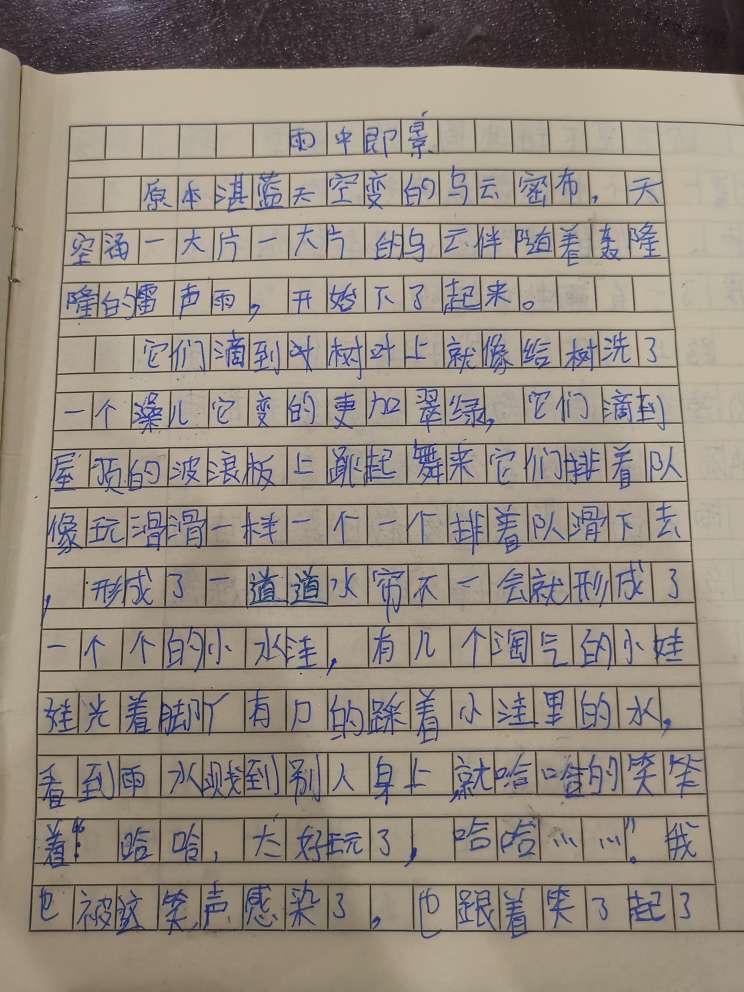 雨中即景
原本湛蓝天空变的乌云密布，天
空涌一大片一大片的乌云伴随着轰隆
隆的雷声雨，开始下了起来。
它们滴到叶树叶上就像给树洗了
一个澡儿它变的更加翠绿，它们滴到
屋顶的波浪板上跳起舞来它们排着队
像玩滑滑一样一个一个排着队滑下去
，形成了一道道水帘不一会就形成了
一个个的小水洼，有几个淘气的小娃
娃光着脚丫有力的踩着小洼里的水，
看到雨水溅到别人身上就哈哈的笑笑
着：“哈哈，太好玩了，哈哈……”。我
也被这笑声感染了，也跟着笑了起了